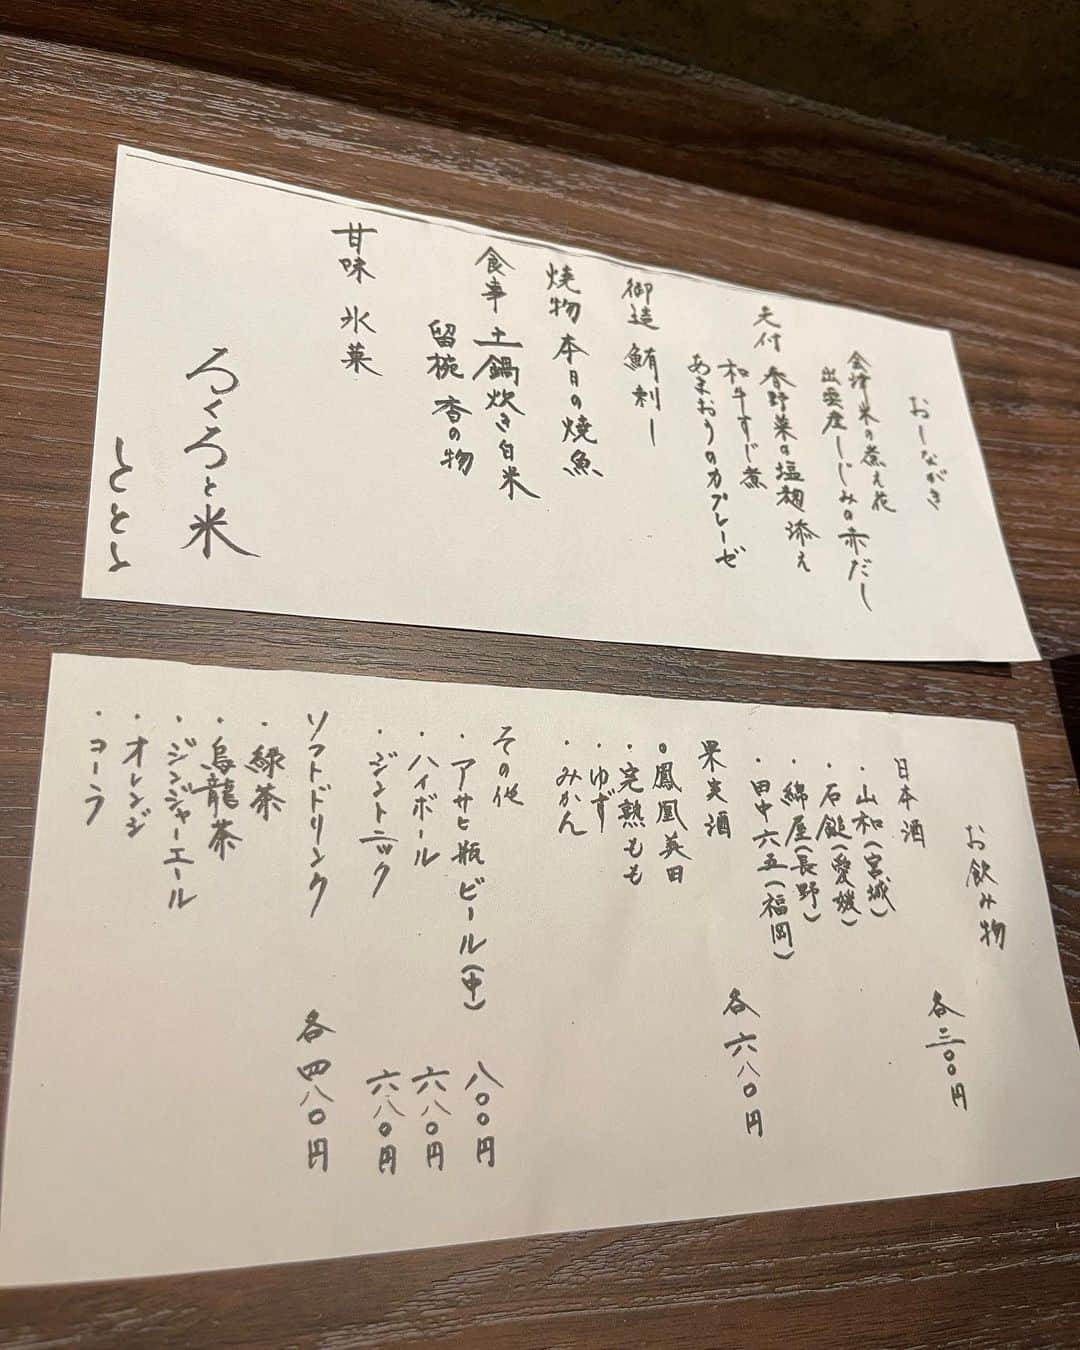 おしながき
会津米の煮え花
出雲産しじみの赤だし
先付 春野菜の塩麹添え
和牛すじ煮
あまおうのカプレーゼ
御造 鮪刺し
焼物 本日の焼魚
食事 土鍋炊き白米
留椀 香の物
甘味 氷菓
ろくろと米
ととよ
お飲み物
日本酒 各三〇〇円
・山和(宮城)
・石鎚(愛媛)
・綿屋(長野)
・田中六五(福岡)
果実酒 各六八〇円
・鳳凰美田
・完熟もも
・ゆず
・みかん
その他
・アサヒ瓶ビール(中) 八〇〇円
・ハイボール 六八〇円
・ジントニック 六八〇円
ソフトドリンク 各四八〇円
・緑茶
・烏龍茶
・ジンジャーエール
・オレンジ
・コーラ